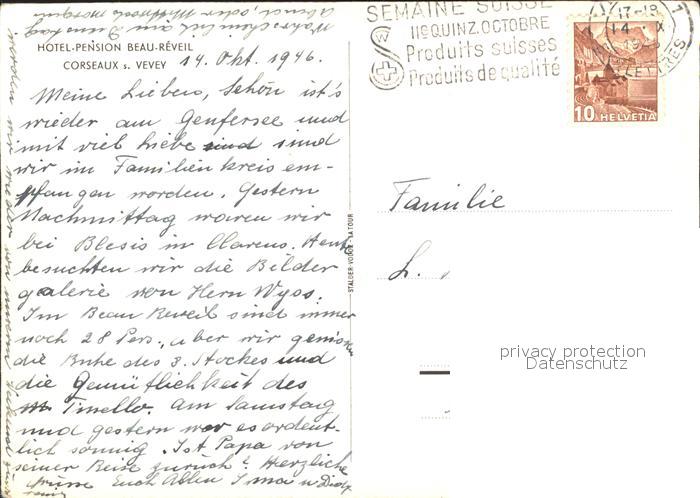 HOTEL-PENSION BEAU-RÉVEIL
CORSEAUX s. VEVEY
14. Okt. 1946.
Meine Lieben, Schön ist's
wieder am Genfersee und
mit viel Liebe sind
wir im Familienkreis em-
pfangen worden. Gestern
Nachmittag waren wir
bei Blesis in Clarens. Heute
besuchten wir die Bilder
galerie von Hern Wyss.
Im Beau Reveil sind immer
noch 28 Pers., aber wir genießen
die Ruhe des 3. Stockes und
die Gemütlichkeit des
Tinello. Am Samstag
und gestern war es ordent-
lich sonnig. Ist Papa von
seiner Reise zurück? Herzliche
Grüsse Euch Allen
Wahrscheinlich am Dienstag
Abend, oder Mittwoch
werden wir wieder von
STALDER-VODOZ - LA TOUR
SEMAINE SUISSE
IIe QUINZ. OCTOBRE
Produits suisses
Produits de qualité
17-18
10 HELVETIA
Familie
L.
privacy protection
Datenschutz